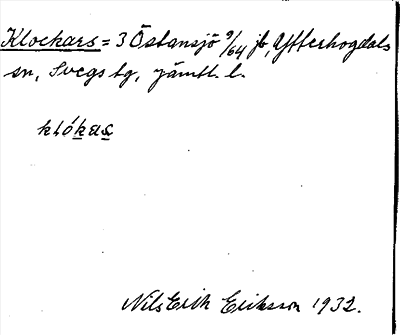 Klockars = 3 Östansjö 9/64 jb, Ytterhogdals
sn, Svegs tg, Jämtl. l.
klókas
Nils Erik Eriksson 1932.